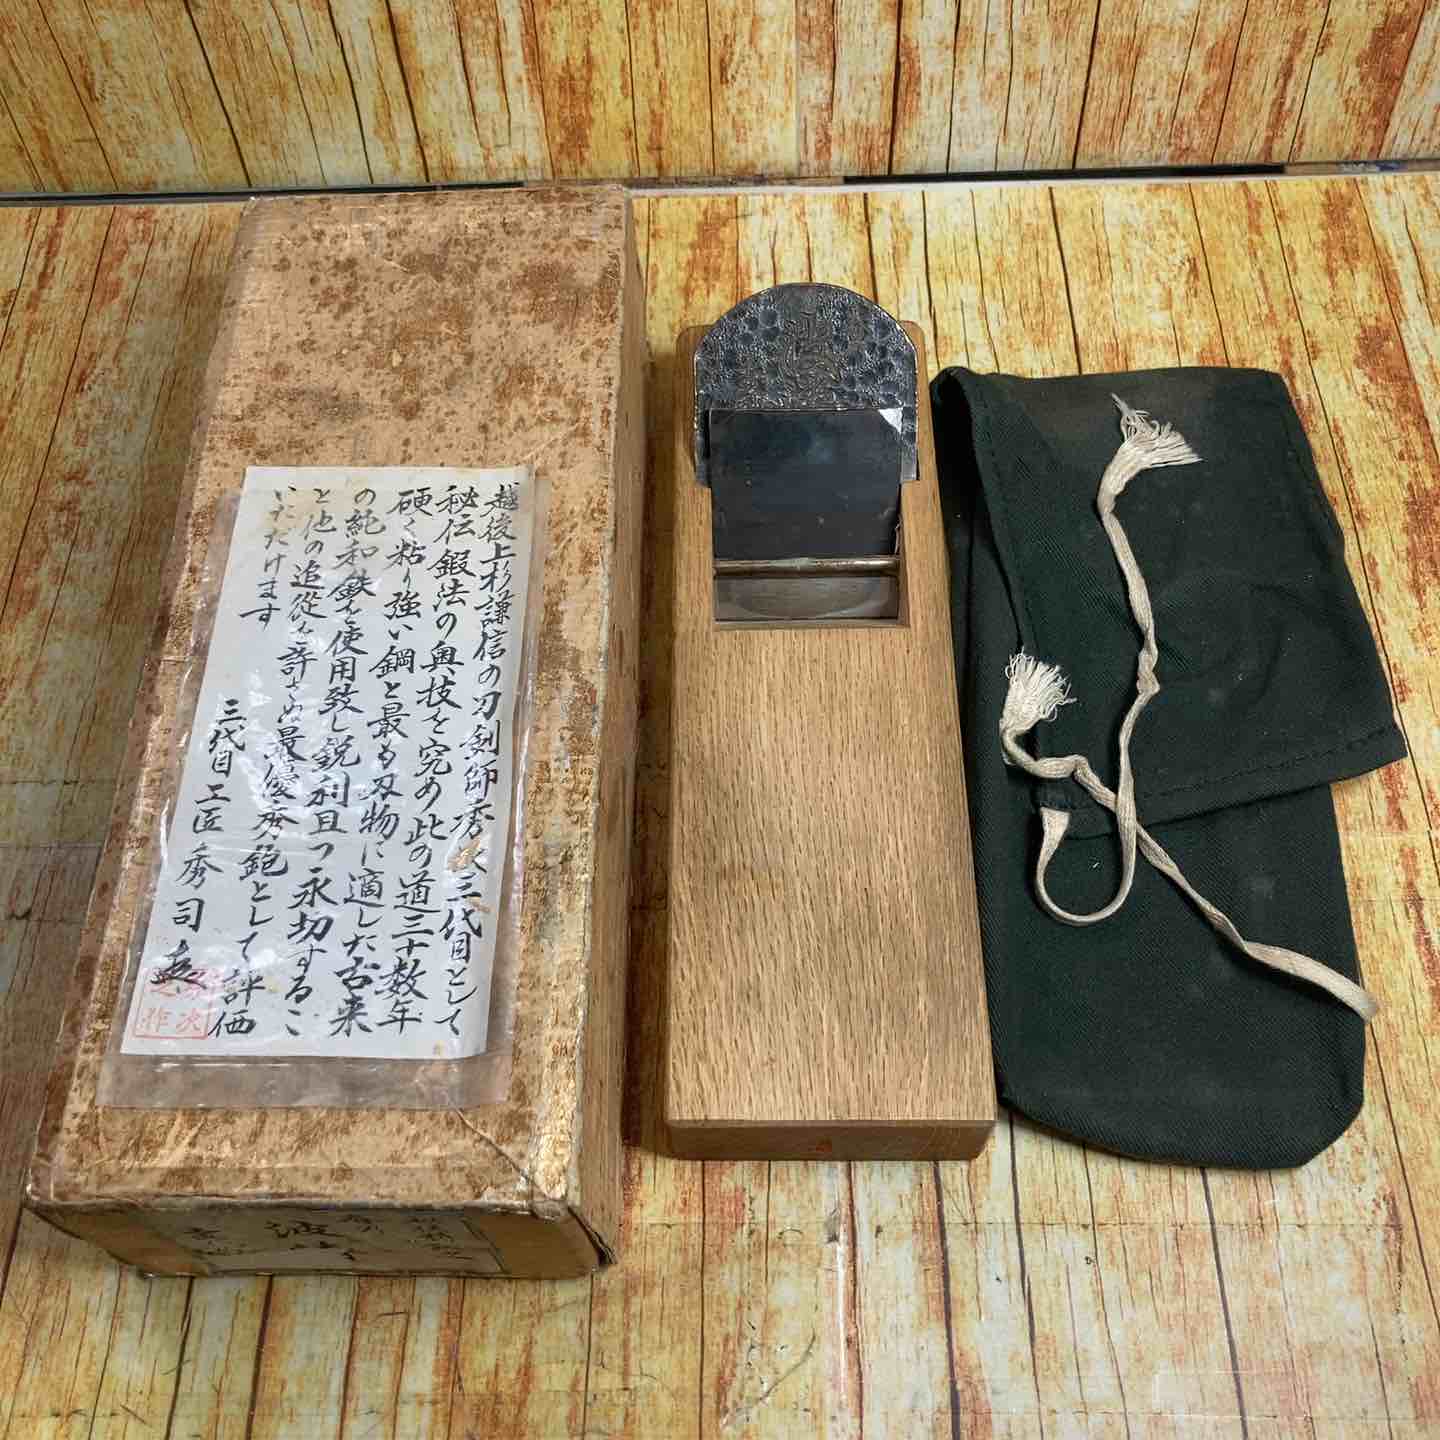 越後上杉謙信の刀剣師秀次三代目として
秘伝鍛法の奥技を究め此の道三十数年
硬く粘り強い鋼と最も刃物に適した古来
の純和鉄を使用致し鋭利且つ永切するこ
と他の追從を許さぬ最優秀鉋として評価
いただけます
三代目 工匠 秀司
作 次